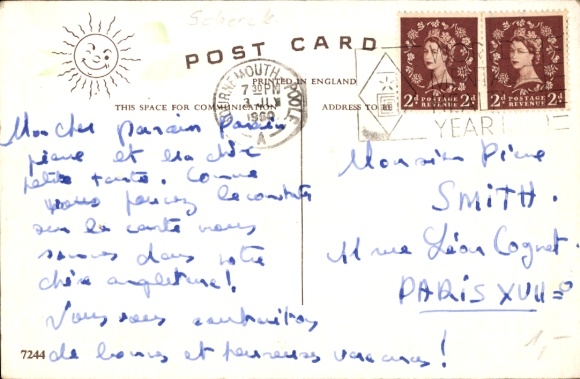 Scherck
POST CARD
PRINTED IN ENGLAND
THIS SPACE FOR COMMUNICATION
ADDRESS TO BE
BOURNEMOUTH POOLE
7 30 PM
3 JLY
1960
A
YEAR
2d POSTAGE REVENUE 2d
2d POSTAGE REVENUE 2d
Mon cher parrain Parrain
pierre et ma chère
petite tante. Comme
vous pouvez le constater
sur la carte nous
sommes dans votre
chère angleterre!
Nous vous souhaitons
de bonnes et heureuses vacances!
Monsieur Pierre
SMITH.
11 rue Léon Cognet.
PARIS XVII e
7244
1,-